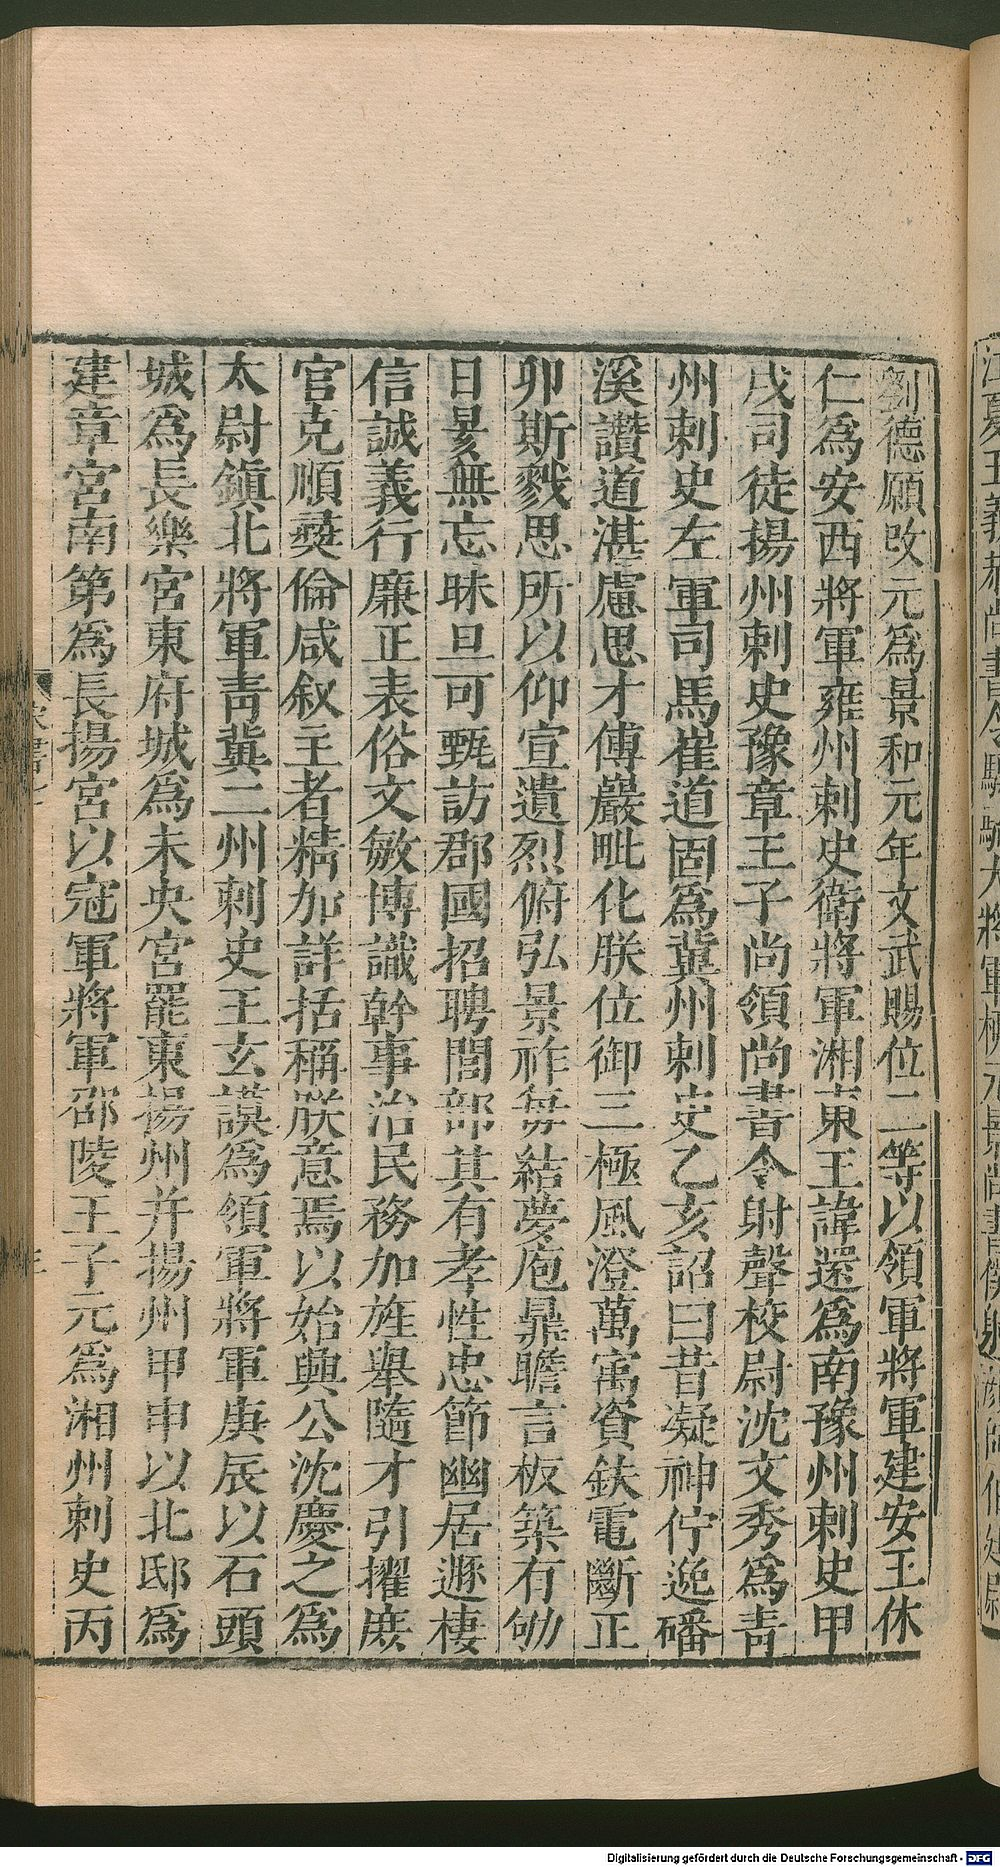 劉德願改元為景和元年文武賜位二等以領軍將軍建安王休
仁為安西將軍雍州刺史衛將軍湘東王諱還為南豫州刺史甲
戌司徒揚州刺史豫章王子尚領尚書令射聲校尉沈文秀為青
州刺史左軍司馬崔道固為冀州刺史乙亥詔曰昔凝神佇逸磻
溪讚道湛慮思才傅巖毗化朕位御三極風澄萬寓資鈇電斷正
卯斯戮思所以仰宣遺烈俯弘景祚每結夢庖鼎瞻言板築有劬
日昃無忘昧旦可甄訪郡國招聘閭部其有孝性忠節幽居遯棲
信誠義行廉正表俗文敏博識幹事治民務加旌舉隨才引擢庶
官克順彝倫咸叙主者精加詳括稱朕意焉以始興公沈慶之為
太尉鎮北將軍青冀二州刺史王玄謨為領軍將軍庚辰以石頭
城為長樂宮東府城為未央宮罷東揚州并揚州甲申以北邸為
建章宮南第為長揚宮以冠軍將軍邵陵王子元為湘州刺史丙
Digitalisierung gefördert durch die Deutsche Forschungsgemeinschaft - DFG